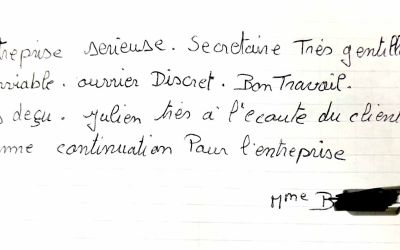 treprise serieuse. Secretaire Très gentill
rviable. ouvrier Discret. Bon Travail.
s deçu. Julien très à l'ecoute du client
nne continuation Pour l'entreprise
Mme B